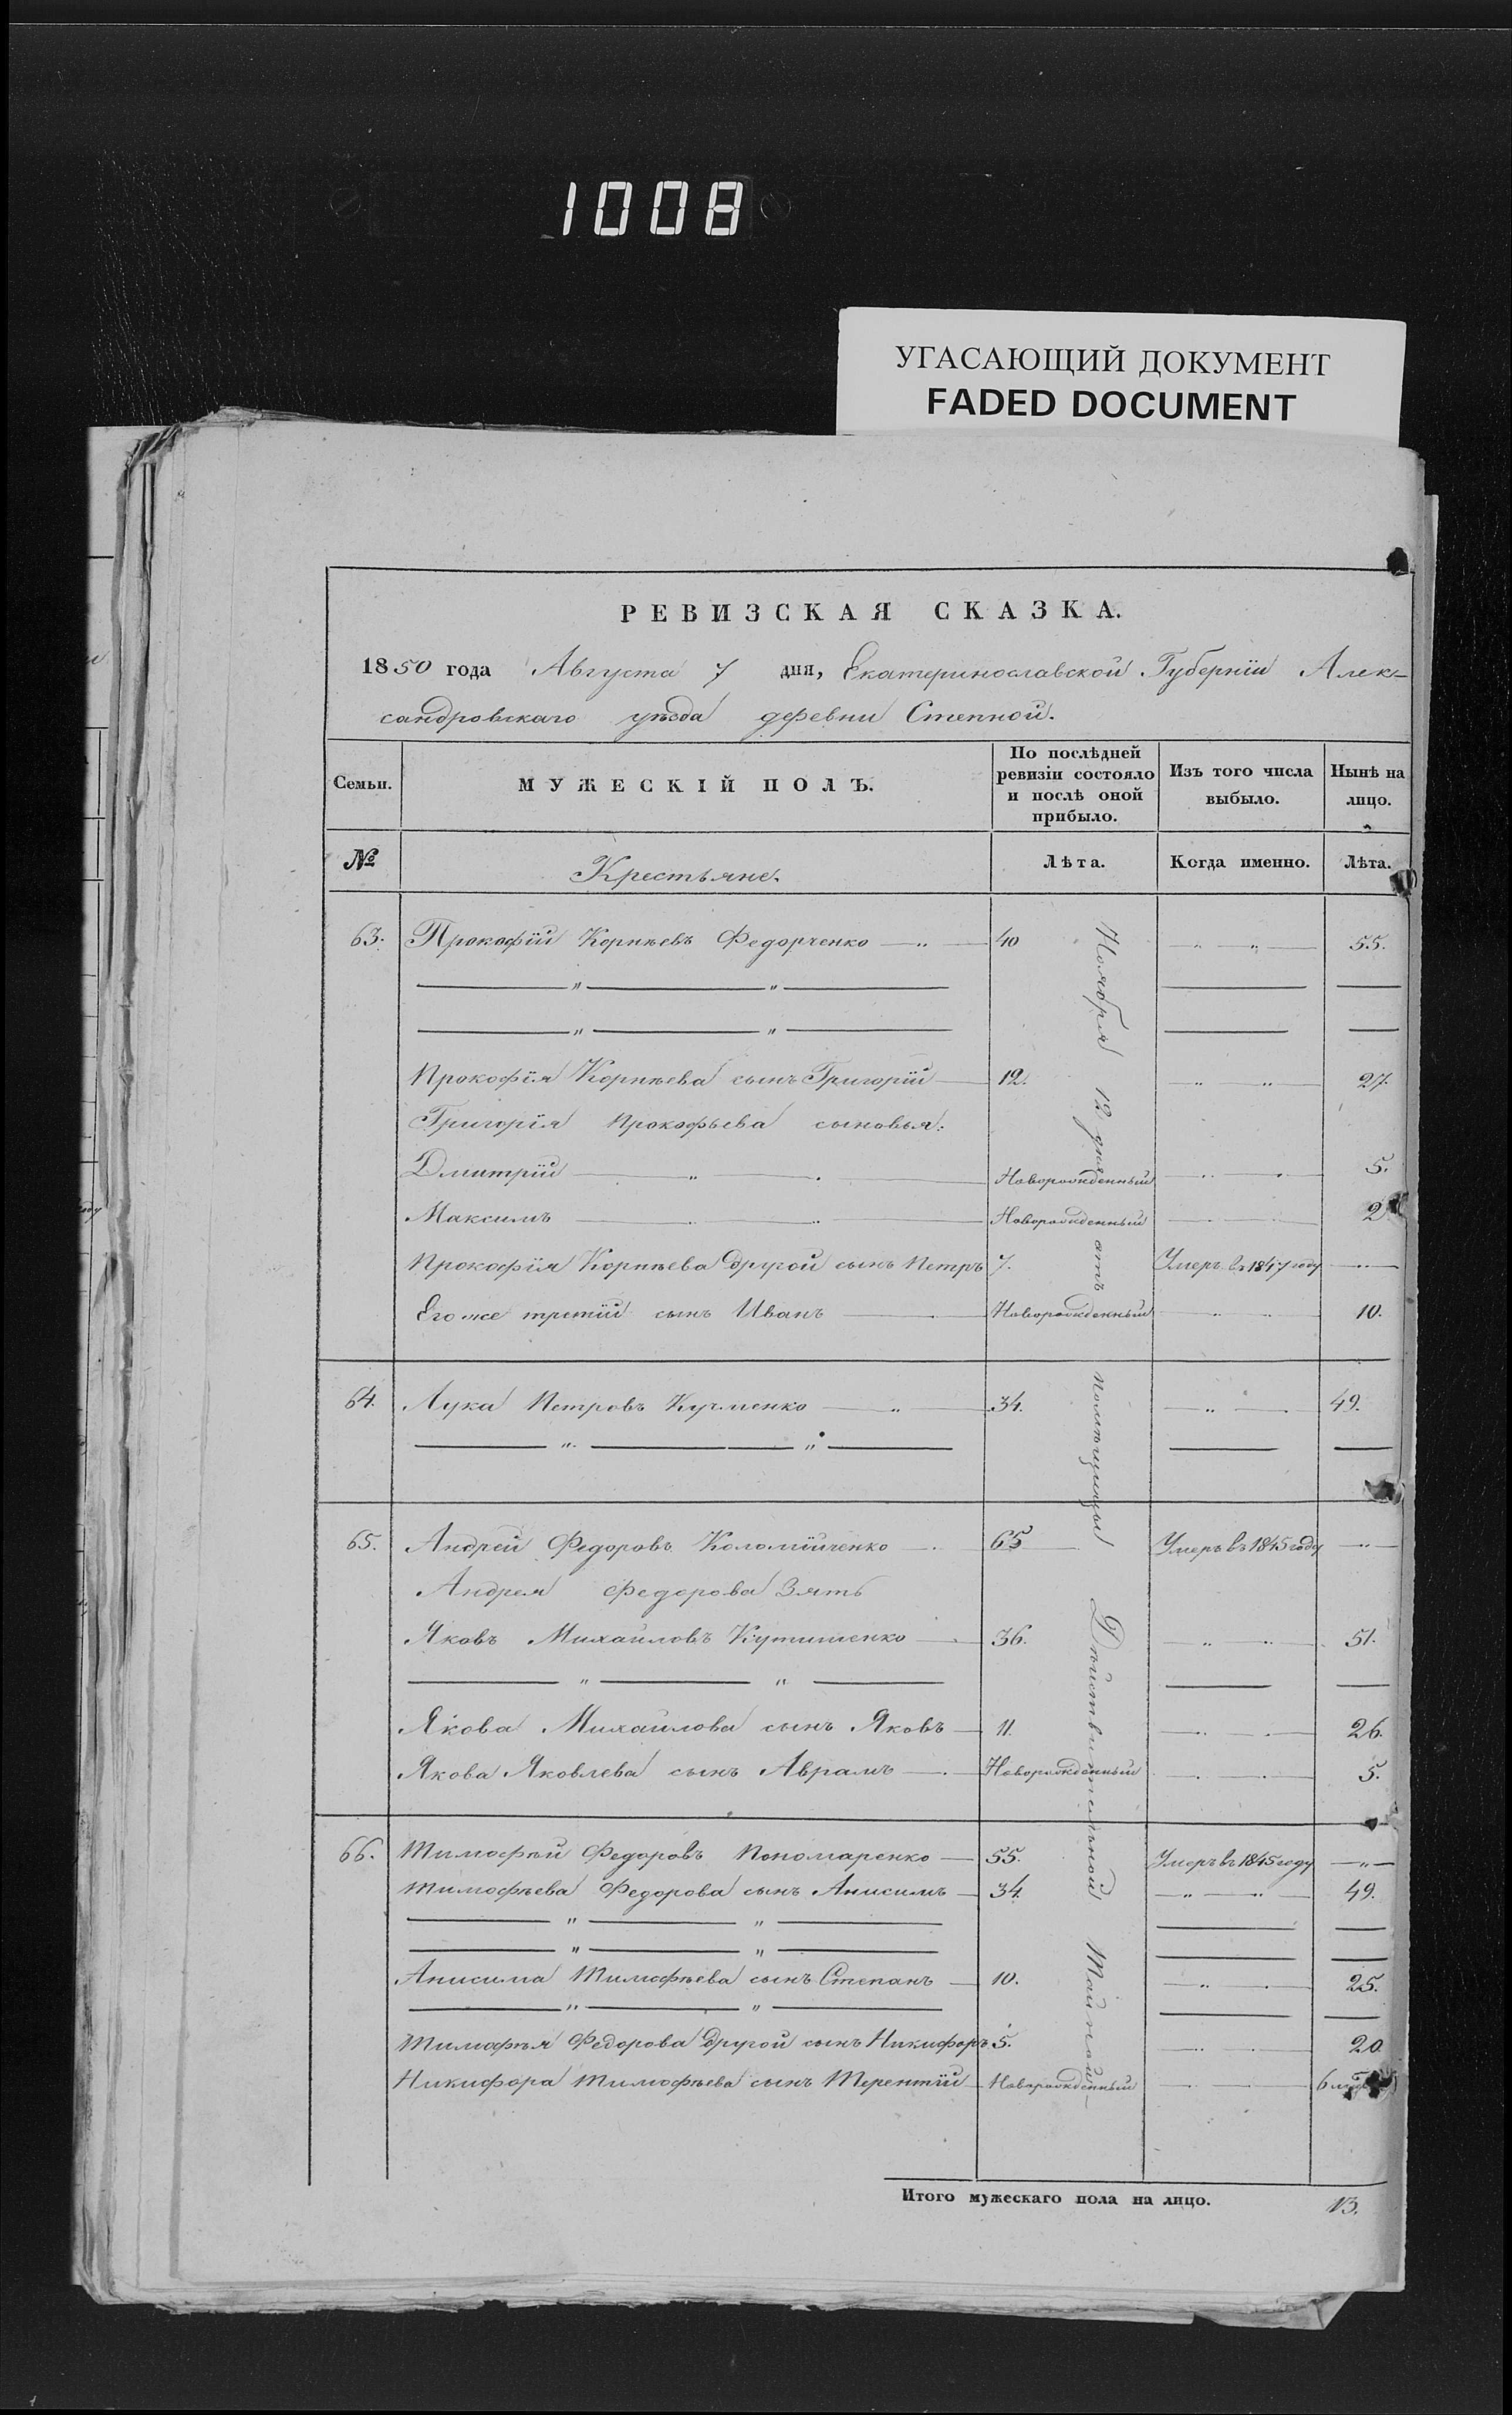 1008
УГАСАЮЩИЙ ДОКУМЕНТ
FADED DOCUMENT
РЕВИЗСКАЯ СКАЗКА.
1850 года Августа 7 дня, Екатеринославской Губерніи Алек-
сандровскаго уѣзда деревни Степной.
Семьи. МУЖЕСКІЙ ПОЛЪ. По послѣдней ревизіи состояло и послѣ оной прибыло. Изъ того числа выбыло. Нынѣ на лицо.
№ Крестьяне. Лѣта. Когда именно. Лѣта.
63. Прокофій Корнѣевъ Федорченко — „ — 40 — „ — 55.
— „ — „ —
— „ — „ —
Прокофія Корнѣева сынъ Григорій — 12. „ „ — 27.
Григорія Прокофьева сыновья:
Дмитрій — „ — Новорожденный — 5.
Максимъ — „ — Новорожденный — 2
Прокофія Корнѣева другой сынъ Петръ 7. Умеръ въ 1847 году —
Его же третій сынъ Иванъ — Новорожденный — 10.
64. Лука Петровъ Кучменко — „ — 34. — „ — 49.
— „ — „ —
65. Андрей Федоровъ Коломійченко — 65 — Умеръ въ 1845 году — „ —
Андрея Федорова Зять
Яковъ Михайловъ — 36. „ „ — 51.
— „ — „ —
Якова Михайлова сынъ Яковъ — 11. — 26.
Якова Яковлева сынъ Аврамъ — Новорожденный — 5.
66. Тимофѣй Федоровъ Пономаренко — 55. Умеръ въ 1845 году — „ —
Тимофѣева Федорова сынъ Анисимъ — 34. — „ — „ — 49.
— „ — „ —
— „ — „ —
Анисима Тимофѣева сынъ Степанъ — 10. — „ — 25.
— „ — „ —
Тимофѣя Федорова другой сынъ Никифоръ 5. — 20.
Никифора Тимофѣева сынъ Терентій — Новорожденный — 6
Ноября 12 дня отъ помѣщицы Дѣйствительной Тайной
Итого мужескаго пола на лицо. 13.